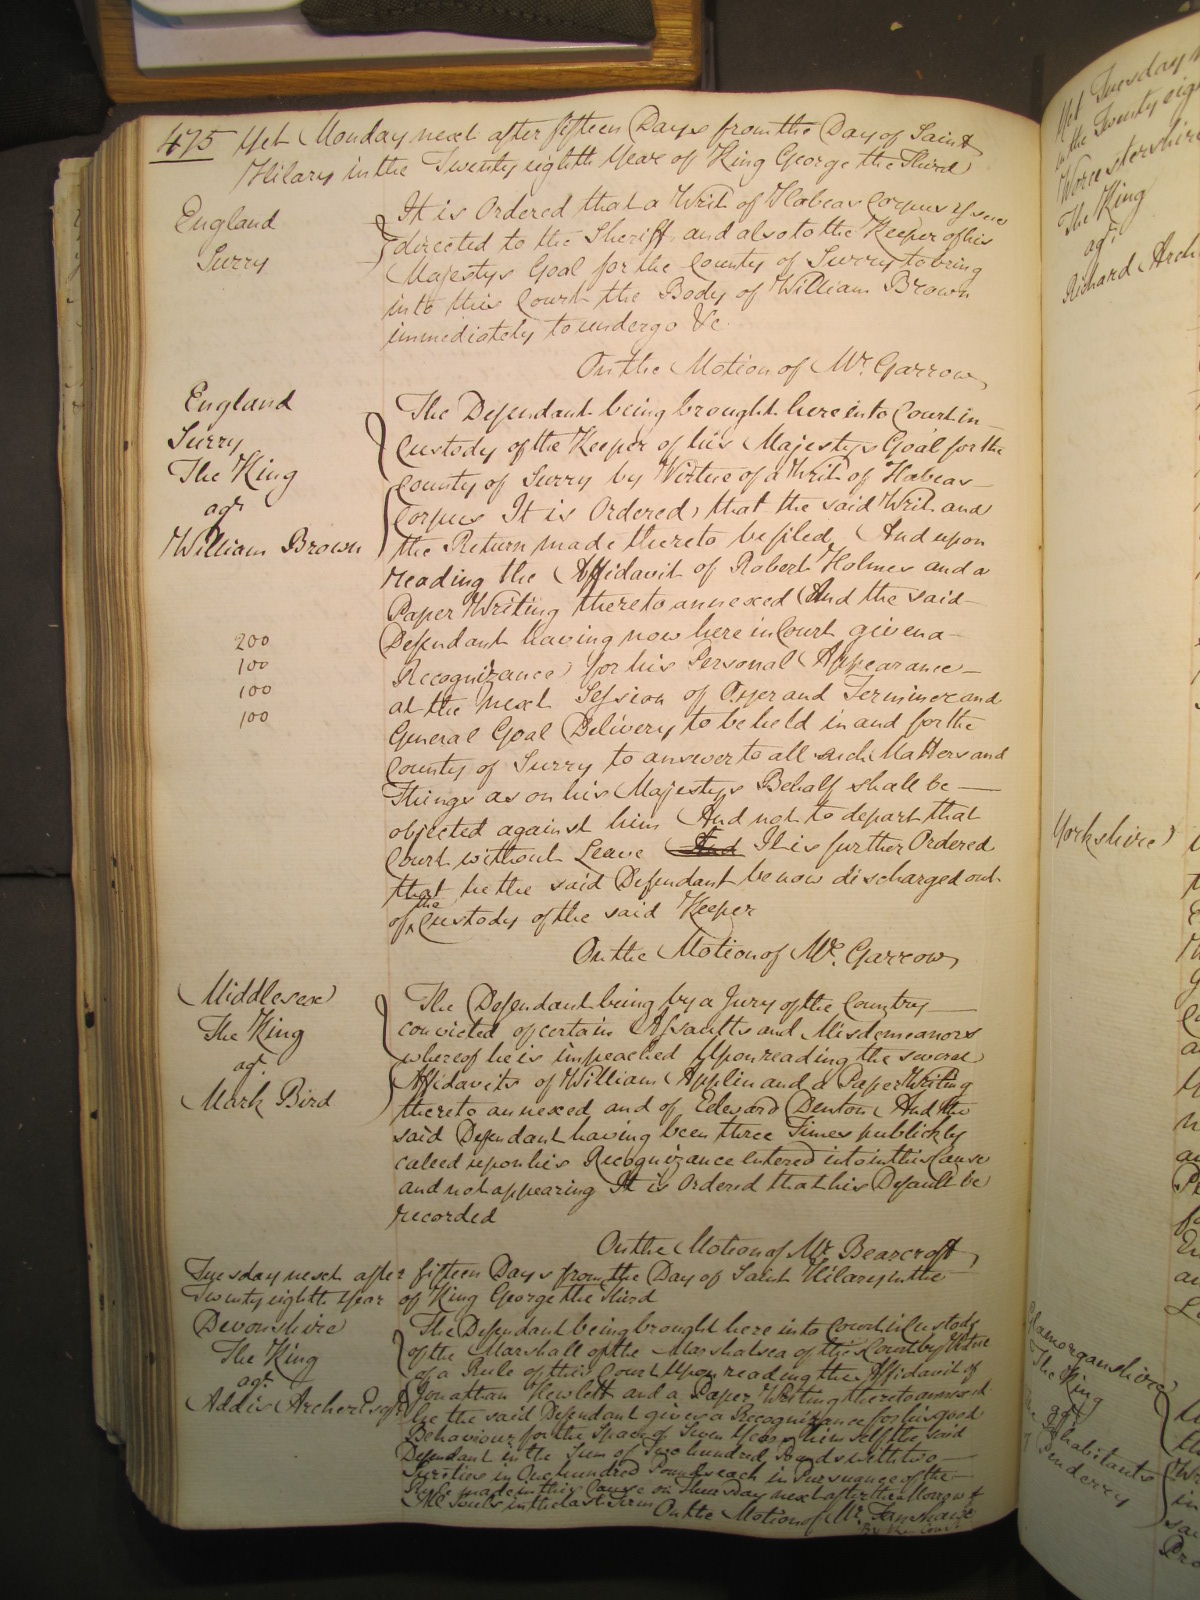 475 Yet Monday next after fifteen Days from the Day of Saint
Hilary in the Twenty eighth Year of King George the Third
England
Surry
It is Ordered that a Writ of Habeas Corpus issue
directed to the Sheriff and also to the Keeper of his
Majestys Goal for the County of Surry to bring
into this Court the Body of William Brown
immediately to undergo &c
On the Motion of Mr. Garrow
England
Surry
The King
agt
William Brown
The Defendant being brought here into Court in
Custody of the Keeper of his Majestys Goal for the
County of Surry by Virtue of a Writ of Habeas
Corpus It is Ordered that the said Writ and
the Return made thereto be filed And upon
reading the Affidavit of Robert Holmes and a
Paper Writing thereto annexed And the said
Defendant having now here in Court given a
Recognizance for his Personal Appearance
at the next Session of Oyer and Terminer and
General Goal Delivery to be held in and for the
County of Surry to answer to all such Matters and
Things as on his Majestys Behalf shall be
objected against him And not to depart that
Court without Leave And It is further Ordered
that he the said Defendant be now discharged out
of the Custody of the said Keeper
200
100
100
100
On the Motion of Mr. Garrow
Middlesex
The King
agt
Mark Bird
The Defendant being by a Jury of the Country
convicted of certain Assaults and Misdemeanors
whereof he is impeached Upon reading the several
Affidavits of William Applin and a Paper Writing
thereto annexed and of Edward Denton And the
said Defendant having been three Times publickly
called upon his Recognizance entered into in this Cause
and not appearing It is Ordered that his Default be
recorded
On the Motion of Mr. Bearcroft
Tuesday next after fifteen Days from the Day of Saint Hilary in the
Twenty eighth Year of King George the Third
Devonshire
The King
agt
Addis Archer Esqr
The Defendant being brought here into Court in Custody
of the Marshall of the Marshalsea of this Court by Virtue
of a Rule of this Court Upon reading the Affidavit of
Jonathan Hewlett and a Paper Writing thereto annexed
he the said Defendant gives a Recognizance for his good
Behaviour for the Space of Seven Years himself the said
Defendant in the Sum of Two hundred Pounds with two
Sureties in One hundred Pounds each in Pursuance of the
Rule made in this Cause on Thursday next after the Morrow of
All Souls in the last Term On the Motion of Mr. Fanshawe
By the Court
Yet Tuesday
in the Twenty eig
Worcestershire
The King
agt
Richard Arch
Yorkshire
Glamorganshire
The King
agt
The Inhabitants
of Penderry